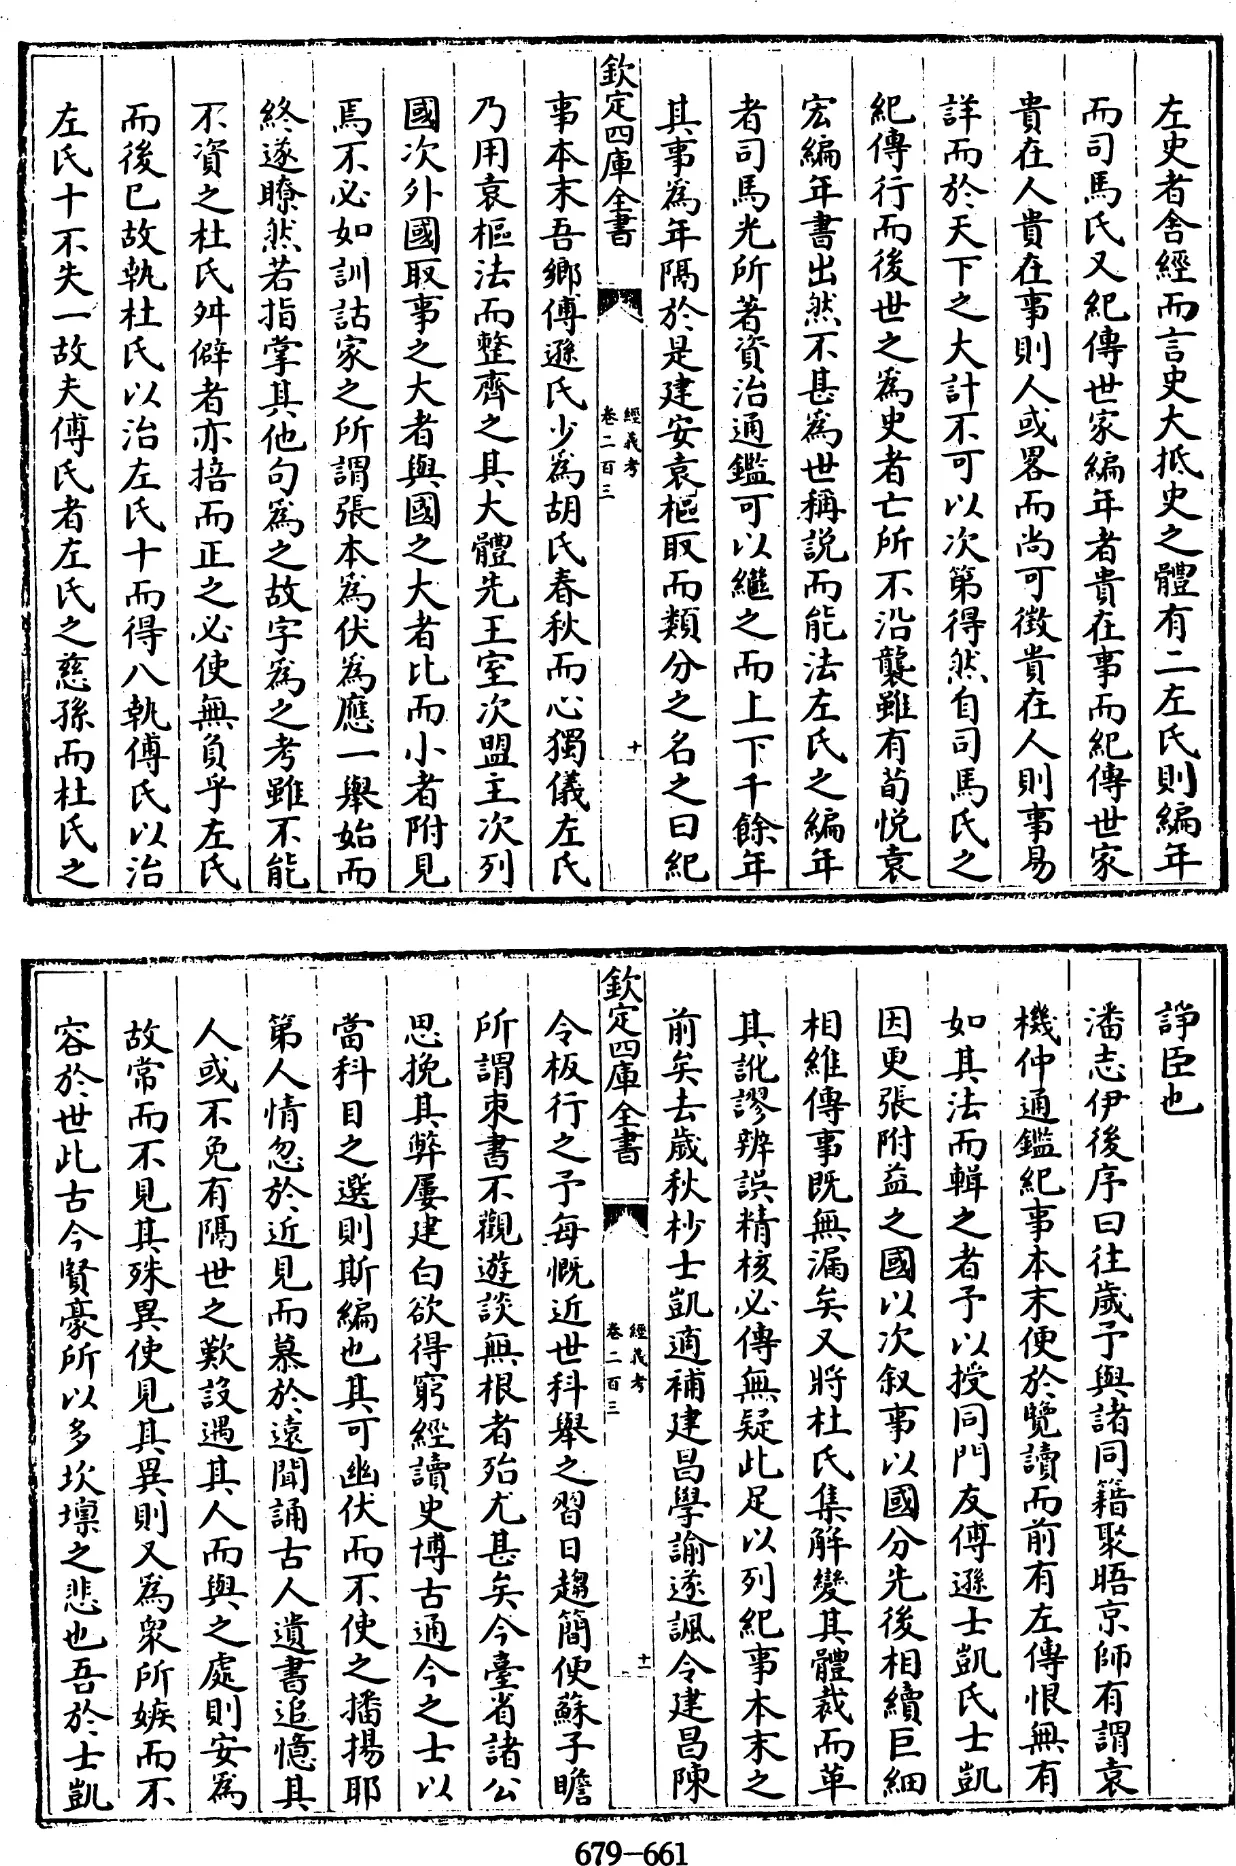 左史者舍經而言史大抵史之體有二左氏則編年
而司馬氏又紀傳世家編年者貴在事而紀傳世家
貴在人貴在事則人或畧而尚可徴貴在人則事易
詳而於天下之大計不可以次第得然自司馬氏之
紀傳行而後世之為史者亡所不沿襲雖有荀悦袁
宏編年書出然不甚為世稱説而能法左氏之編年
者司馬光所著資治通鑑可以繼之而上下千餘年
其事為年隔於是建安袁樞取而類分之名之曰紀
欽定四庫全書
經義考
卷二百三
十
事本末吾鄉傅遜氏少為胡氏春秋而心獨儀左氏
乃用袁樞法而整齊之其大體先王室次盟主次列
國次外國取事之大者與國之大者比而小者附見
焉不必如訓詁家之所謂張本為伏為應一舉始而
終遂瞭然若指掌其他句為之故字為之考雖不能
不資之杜氏舛僻者亦掊而正之必使無負乎左氏
而後已故執杜氏以治左氏十而得八執傅氏以治
左氏十不失一故夫傅氏者左氏之慈孫而杜氏之
諍臣也
潘志伊後序曰往歲予與諸同籍聚晤京師有謂袁
機仲通鑑紀事本末便於覽讀而前有左傳恨無有
如其法而輯之者予以授同門友傅遜士凱氏士凱
因更張附益之國以次叙事以國分先後相續巨細
相維傳事既無漏矣又將杜氏集解變其體裁而革
其訛謬辨誤精核必傳無疑此足以列紀事本末之
前矣去歲秋杪士凱適補建昌學諭遂諷令建昌陳
欽定四庫全書
經義考
卷二百三
十一
令板行之予每慨近世科舉之習日趨簡便蘇子瞻
所謂束書不觀遊談無根者殆尤甚矣今臺省諸公
思挽其弊屢建白欲得窮經讀史博古通今之士以
當科目之選則斯編也其可幽伏而不使之播揚耶
第人情忽於近見而慕於遠聞誦古人遺書追憶其
人或不免有隔世之歎設遇其人而與之處則安為
故常而不見其殊異使見其異則又為衆所嫉而不
容於世此古今賢豪所以多坎壈之悲也吾於士凱
679-661